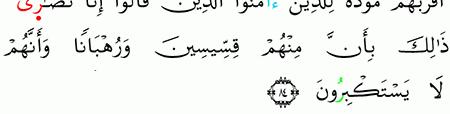 أَقْرَبَهُم مَّوَدَّةً لِّلَّذِينَ ءَامَنُوا الَّذِينَ قَالُوا إِنَّا نَصَـٰرَىٰ
ذَٰلِكَ بِأَنَّ مِنْهُمْ قِسِّيسِينَ وَرُهْبَانًا وَأَنَّهُمْ
لَا يَسْتَكْبِرُونَ ۝٨٤